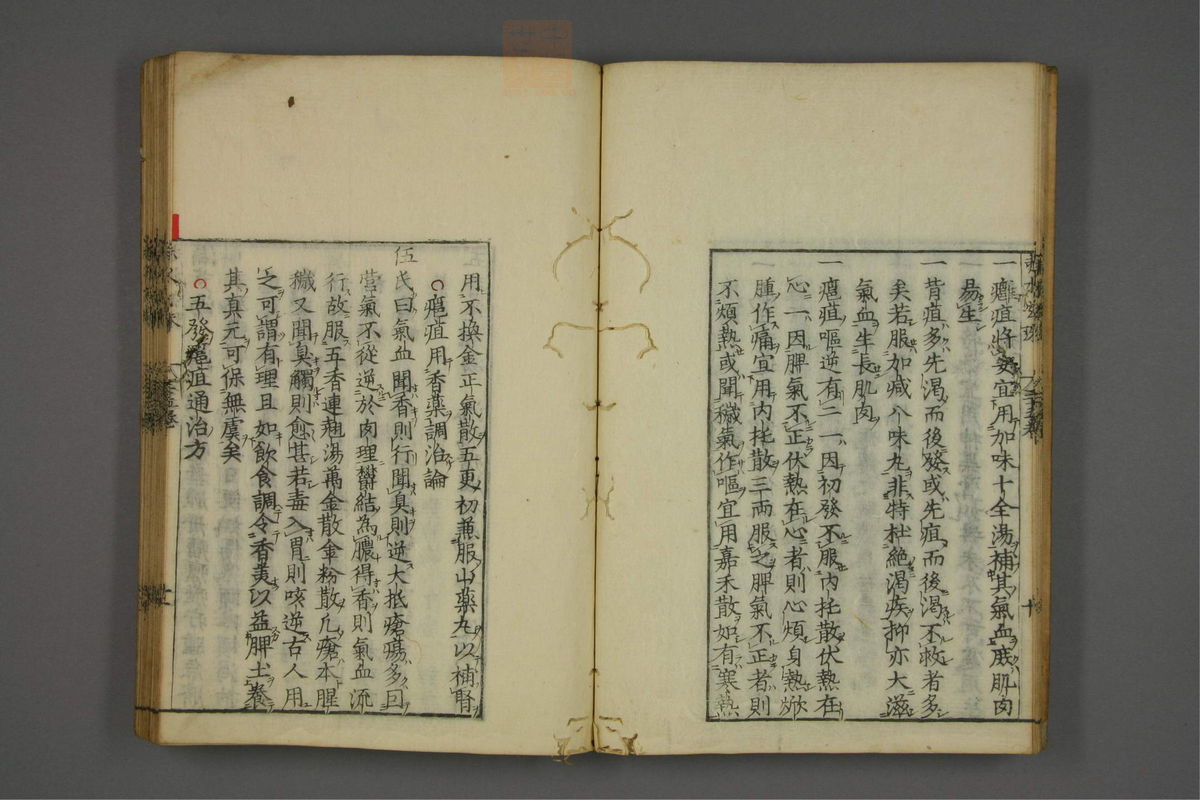 一癰疽將安宜用加味十全湯補其氣血庶肌肉
易生
一背疽多先渴而後發或先疽而後渴不救者多
矣若服加減八味丸非特杜絶渴疾抑亦大滋
氣血生長肌肉
一癰疽嘔逆有二一因初發不服內托散伏熱在
心一因脾氣不正伏熱在心者則心煩身熱焮
腫作痛宜用內托散三兩服之脾氣不正者則
不煩熱或聞穢氣作嘔宜用嘉禾散如有寒熱
用不換金正氣散五更初兼服山藥丸以補腎
○癰疽用香藥調治論
伍氏曰氣血聞香則行聞臭則逆大抵瘡瘍多因
營氣不從逆於肉理鬱結為膿得香則氣血流
行故服五香連翹湯萬金散金粉散凡瘡本腥
穢又聞臭觸則愈甚若毒入胃則咳逆古人用
之可謂有理且如飲食調令香美以益脾土養
其真元可保無虞矣
○五發癰疽通治方